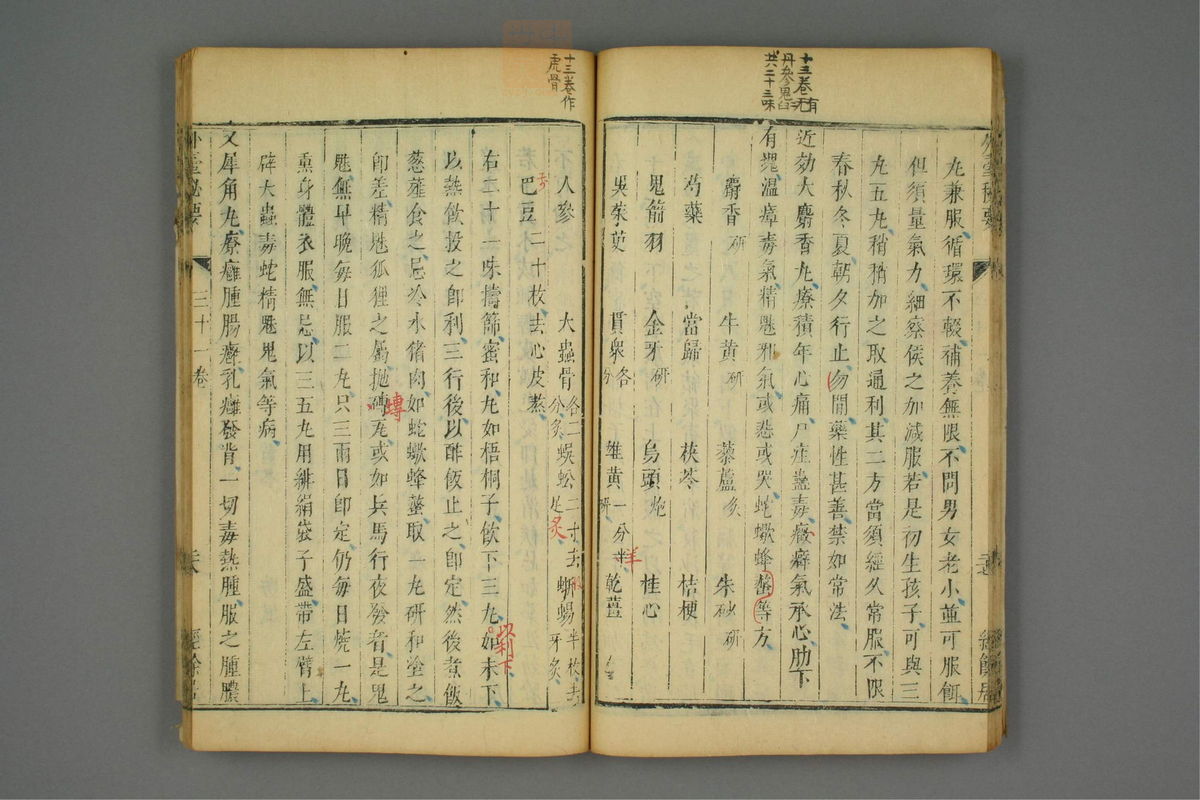 十三卷有
丹參鬼臼无
共二十三味
九兼服循環不輟補養無限不問男女老小並可服餌
但須量氣力細察候之加減服若是初生孩子可與三
丸五丸稍稍加之取通利其二方當須經久常服不限
春秋冬夏朝夕行止勿間藥性甚善禁如常法
近効大麝香丸療積年心痛尸疰蠱毒癥癖氣承心肋下
有塊溫瘴毒氣精魅邪氣或悲或哭蛇蠍蜂螫等方
麝香研 牛黃研 藜蘆炙 朱砂研
芍藥 當歸 茯苓 桔梗
鬼箭羽 金牙研 烏頭炮 桂心
吳茱萸 貫眾各分 雄黃一分研 羊 乾薑
十三卷作
虎骨
人參 大蟲骨各二分炙 蜈蚣二寸去足炙 蜥蜴半枚去牙炙
巴豆二十枚去心皮熬
右二十一味擣篩蜜和丸如梧桐子飲下三丸如未下
以利下
以熱飲投之即利三行後以酢飯止之即定然後煮飯
葱薤食之忌冷水猪肉如蛇蠍蜂螫取一丸研和塗之
即差精魅狐狸之屬拋磚瓦或如兵馬行夜發者是鬼
魅無早晚每日服二丸只三兩日即定仍每日燒一丸
熏身體衣服無忌以三五丸用緋絹袋子盛帶左臂上
辟大蟲毒蛇精魅鬼氣等病
又犀角丸療癰腫腸癰乳癰發背一切毒熱腫服之腫膿
外臺秘要
三十一卷
经餘居